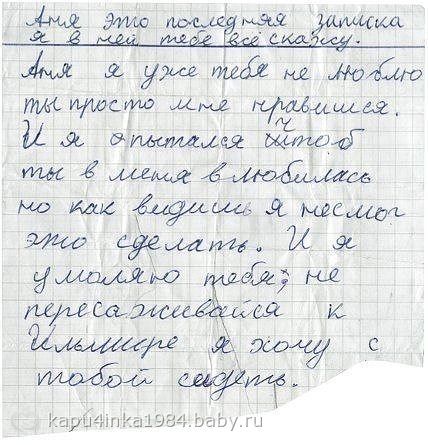 Аня это последняя записка
я в ней тебе всё скажу.
Аня я уже тебя не люблю
ты просто мне нравишся.
И я опытался чтоб
ты в меня влюбилась
но как видишь я несмог
это сделать. И я
умоляю тебя; не
пересаживайся к
Ильмире я хочу с
тобой сидеть.
kapu4inka1984.baby.ru